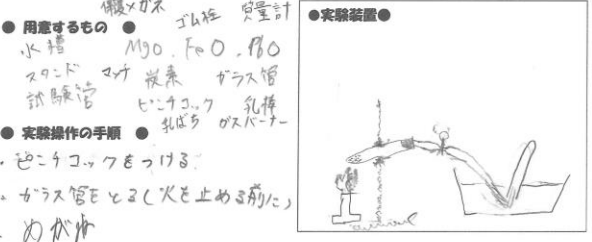 保護メガネ
ゴム栓 質量計
● 用意するもの ●
水槽 MgO. FeO. PbO
スタンド マッチ 炭素 ガラス管
試験管 ピンチコック 乳棒
乳ばち ガスバーナー
● 実験操作の手順 ●
・ピンチコックをつける
・ガラス管をとる(火を止める前に)
・めがね
●実験装置●